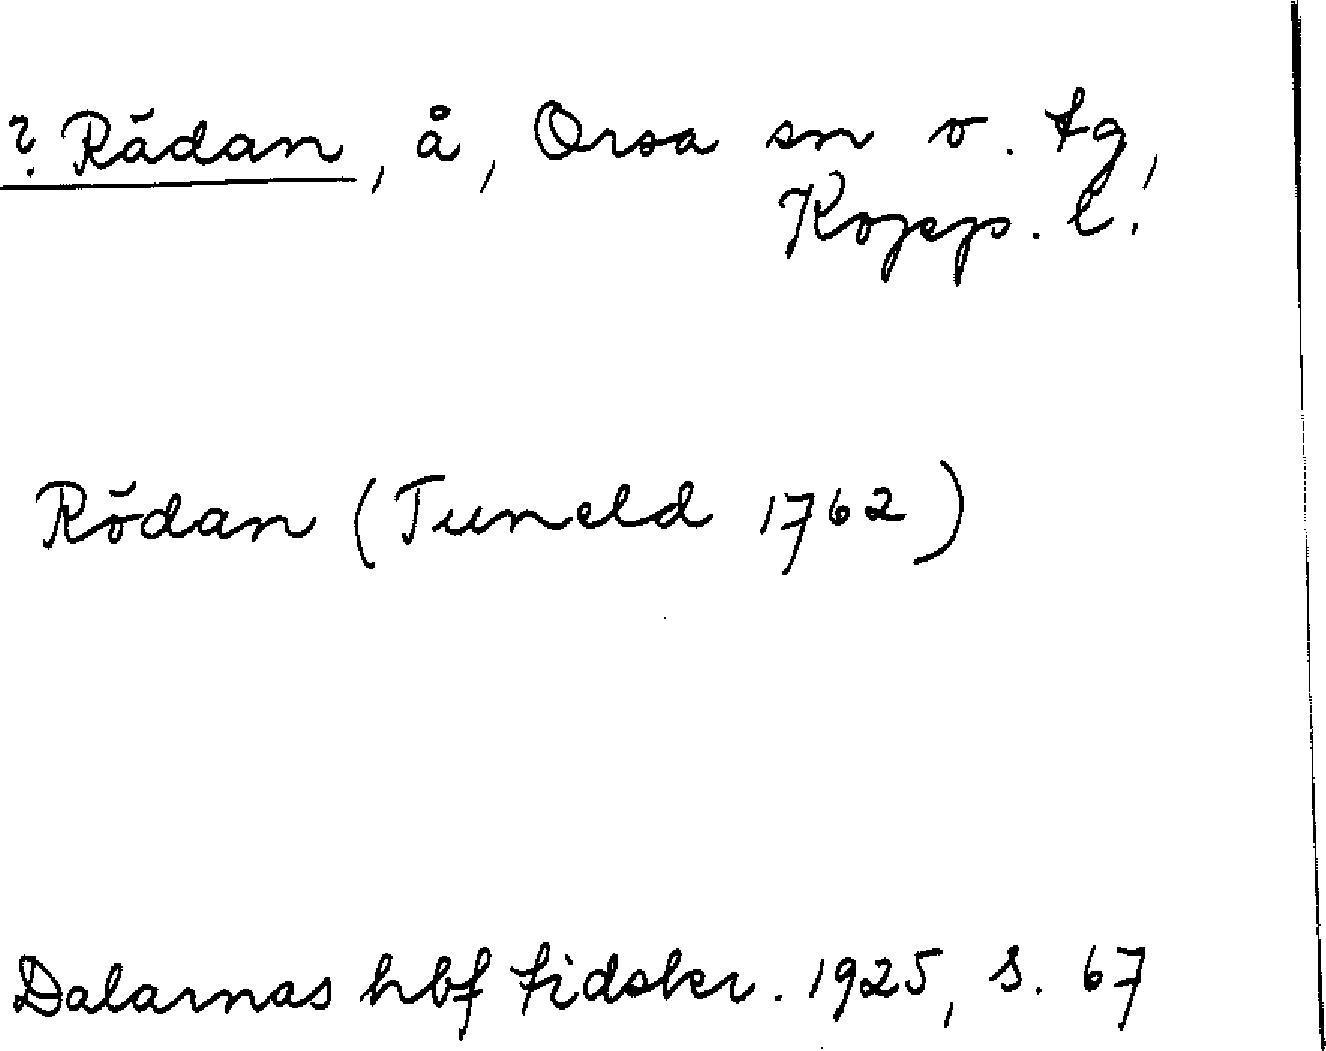 ? Rädan, å, Orsa sn o. tg,
Kopp. l.
Rödan (Tuneld 1762)
Dalarnas hbf tidskr. 1925, s. 67